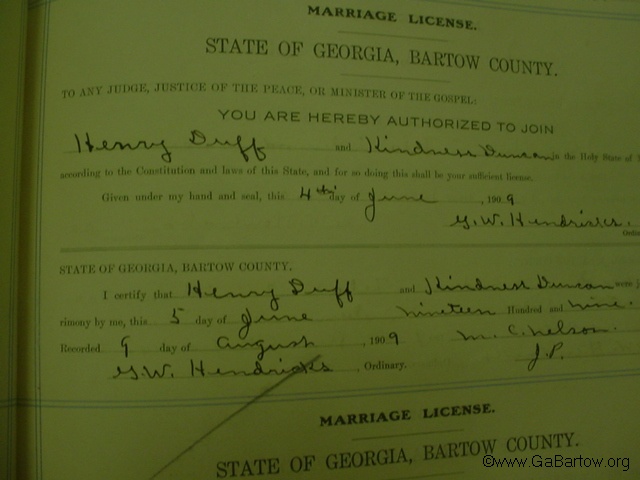 MARRIAGE LICENSE.
STATE OF GEORGIA, BARTOW COUNTY.
TO ANY JUDGE, JUSTICE OF THE PEACE, OR MINISTER OF THE GOSPEL:
YOU ARE HEREBY AUTHORIZED TO JOIN
Henry Duff and Kindness Duncan in the Holy State of
according to the Constitution and laws of this State, and for so doing this shall be your sufficient license.
Given under my hand and seal, this 4th day of June, 1909
G. W. Hendricks.
STATE OF GEORGIA, BARTOW COUNTY.
I certify that Henry Duff and Kindness Duncan were
rimony by me, this 5 day of June nineteen Hundred and nine.
Recorded 9 day of August, 1909 M. C. Nelson.
G. W. Hendricks, Ordinary. J. P.
MARRIAGE LICENSE.
STATE OF GEORGIA, BARTOW COUNTY.
©www.GaBartow.org